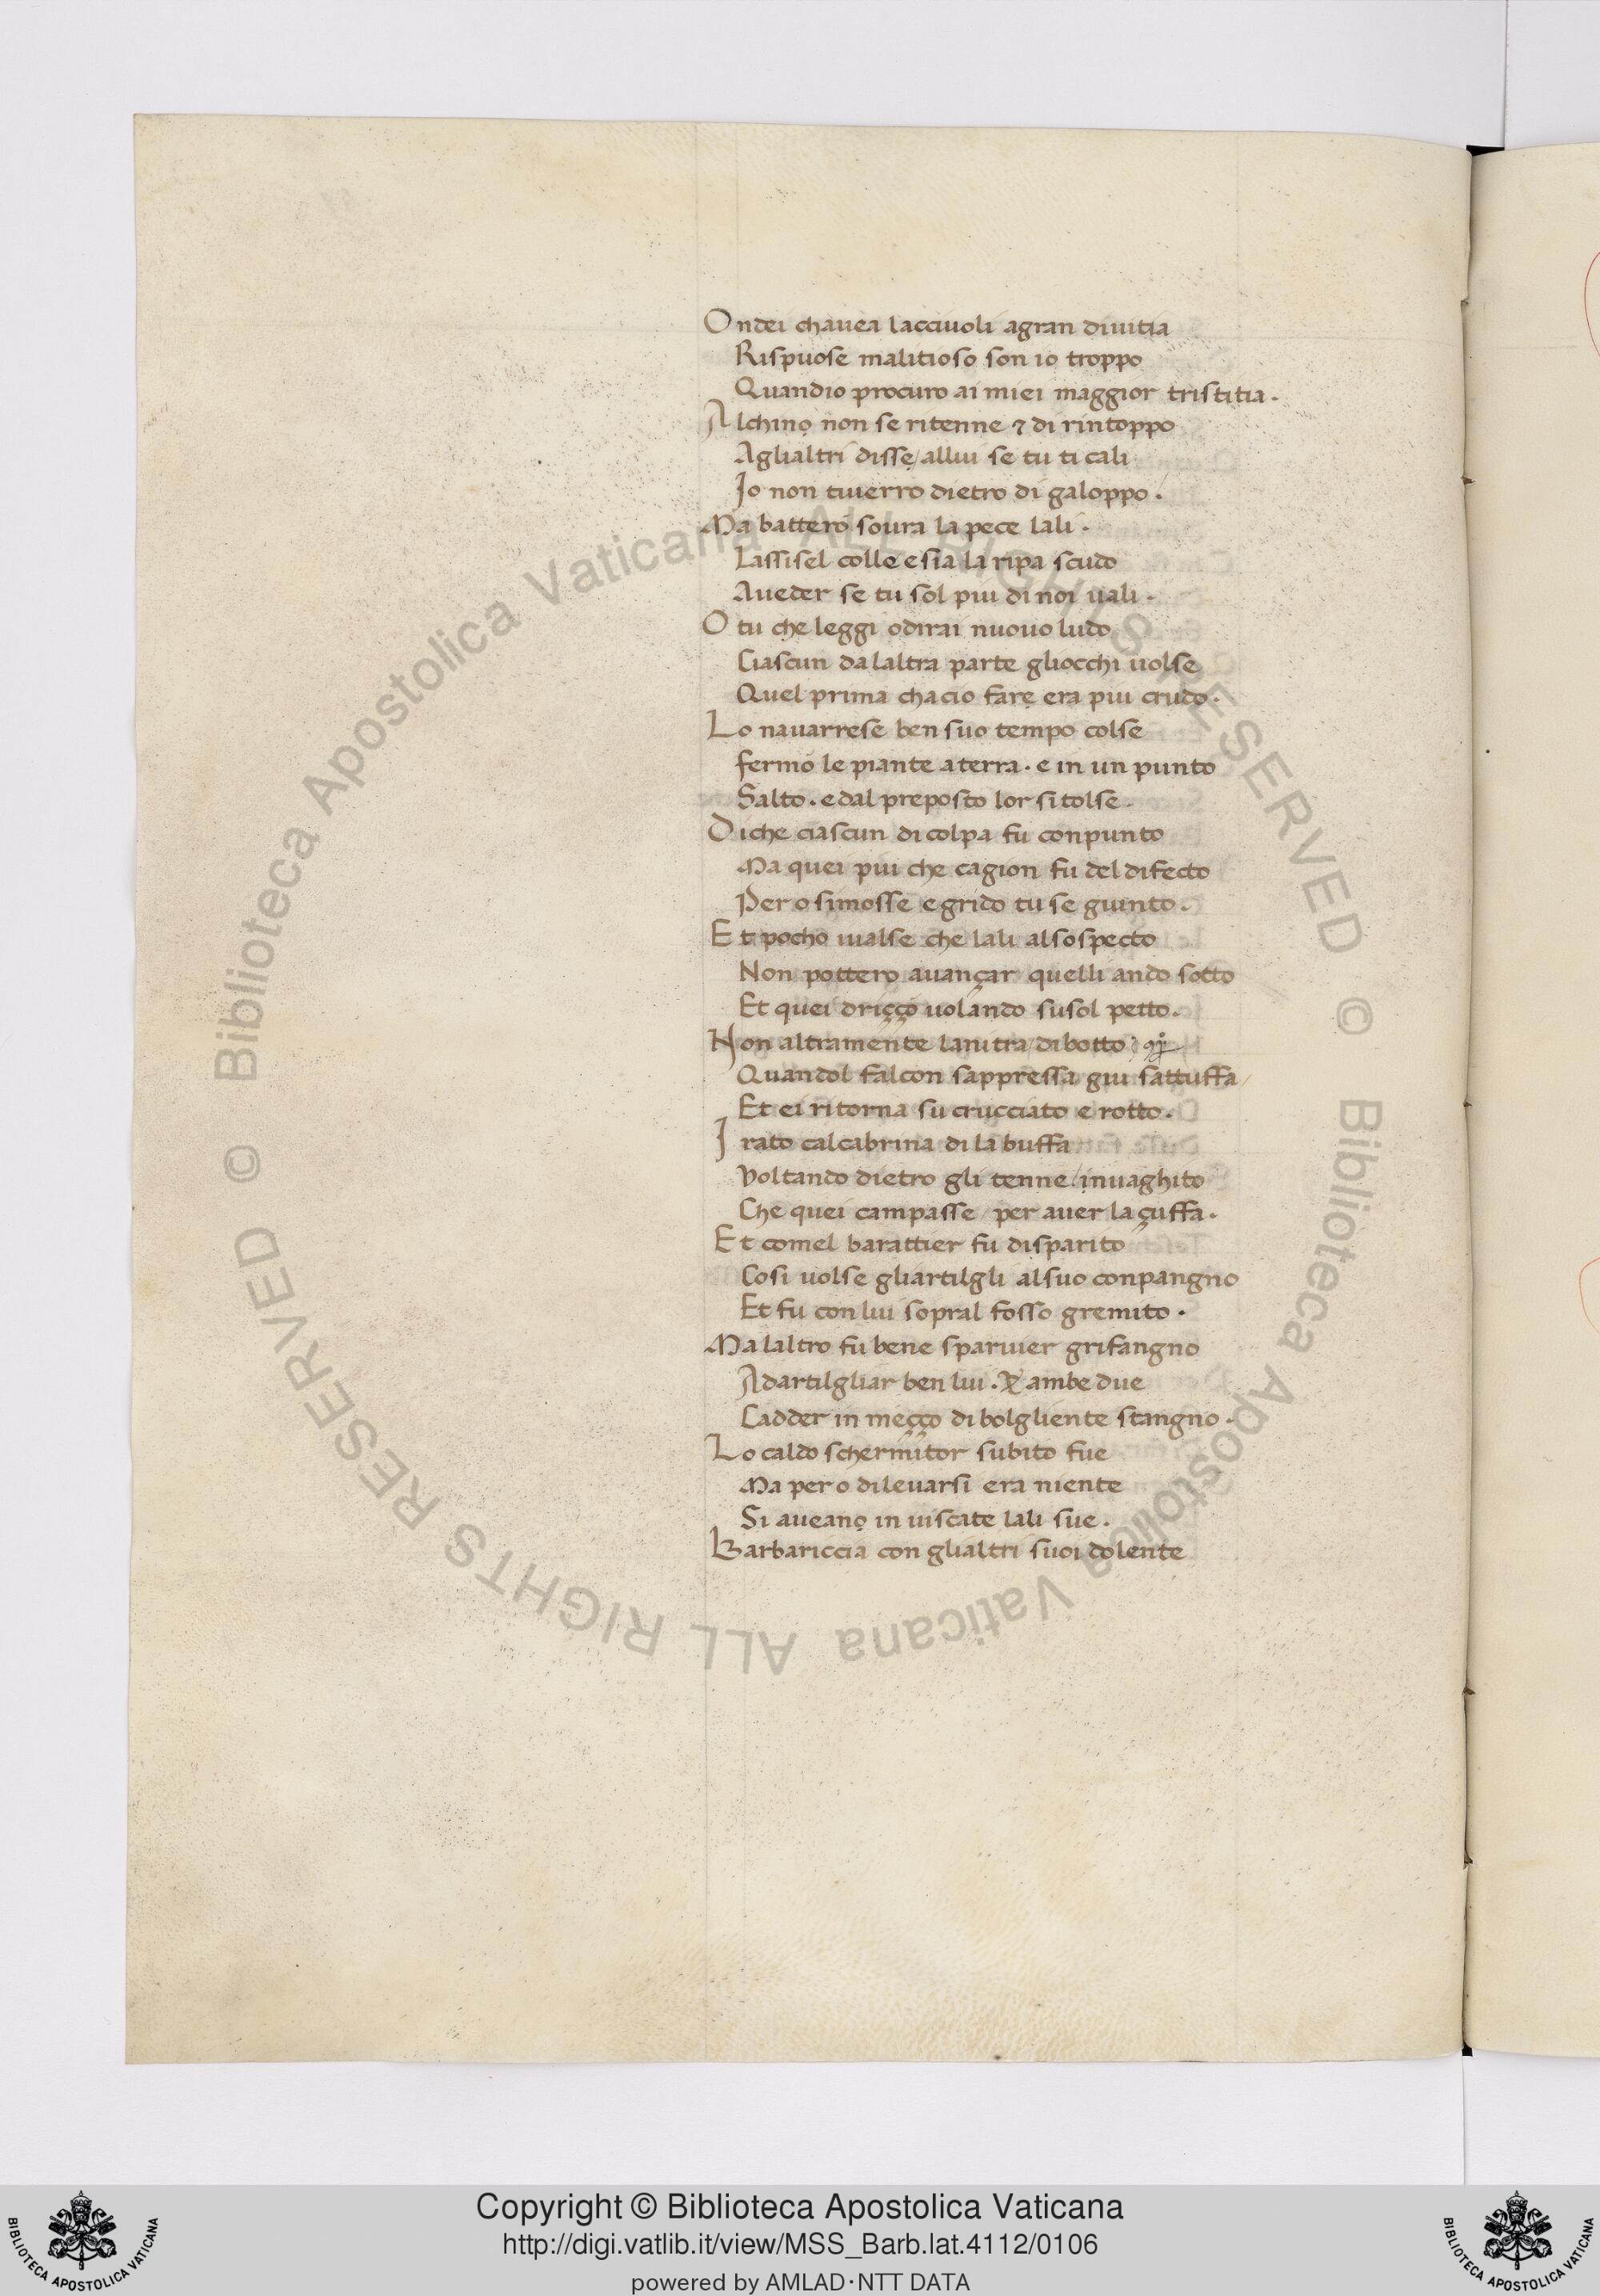 Ondei chauea lacciuoli agran diuitia
Rispuose malitioso son io troppo
Quandio procuro ai miei maggior tristitia.
Alchino non se ritenne ⁊ di rintoppo
Aglialtri disse/allui se tu ti cali
Io non tiuerro dietro di galoppo.
Ma battero soura la pece lali.
Lassisel colle esia la ripa scudo
Aueder se tu sol piu di noi uali.
O tu che leggi odirai nuouo ludo
Ciascun da laltra parte gliocchi uolse
Quel prima chacio fare era piu crudo.
Lo nauarrese ben suo tempo colse
fermo le piante aterra. e in un punto
Salto. edal preposto lor si tolse.
Diche ciascun di colpa fu conpunto
Ma quei piu che cagion fu del difecto
Pero simosse e grido tu se giunto.
Et pocho iualse che lali alsospecto
Non pottero auançar/quelli ando sotto
Et quei driçço uolando susol petto.
Non altramente lanitra/dibotto
Quandol falcon sappressa giu sattuffa/
Et ei ritorna su crucciato e rotto.
Irato calcabrina di la buffa
Voltando dietro gli tenne/inuaghito
Che quei campasse/per auer la çuffa.
Et comel barattier fu disparito
Cosi uolse gliartilgli alsuo conpangno
Et fu con lui sopral fosso gremito.
Ma laltro fu bene sparuier grifangno
Adartilgliar ben lui. & ambe due
Cadder in meçço di bolgliente stangno.
Lo caldo schermitor subito fue
Ma pero dileuarsi era niente
Si aueano in uiscate lali sue.
Barbariccia con glialtri suoi dolente
© Biblioteca Apostolica Vaticana ALL RIGHTS RESERVED © Biblioteca Apostolica Vaticana ALL RIGHTS RESERVED
Copyright © Biblioteca Apostolica Vaticana
http://digi.vatlib.it/view/MSS_Barb.lat.4112/0106
powered by AMLAD·NTT DATA
BIBLIOTECA APOSTOLICA VATICANA
BIBLIOTECA APOSTOLICA VATICANA